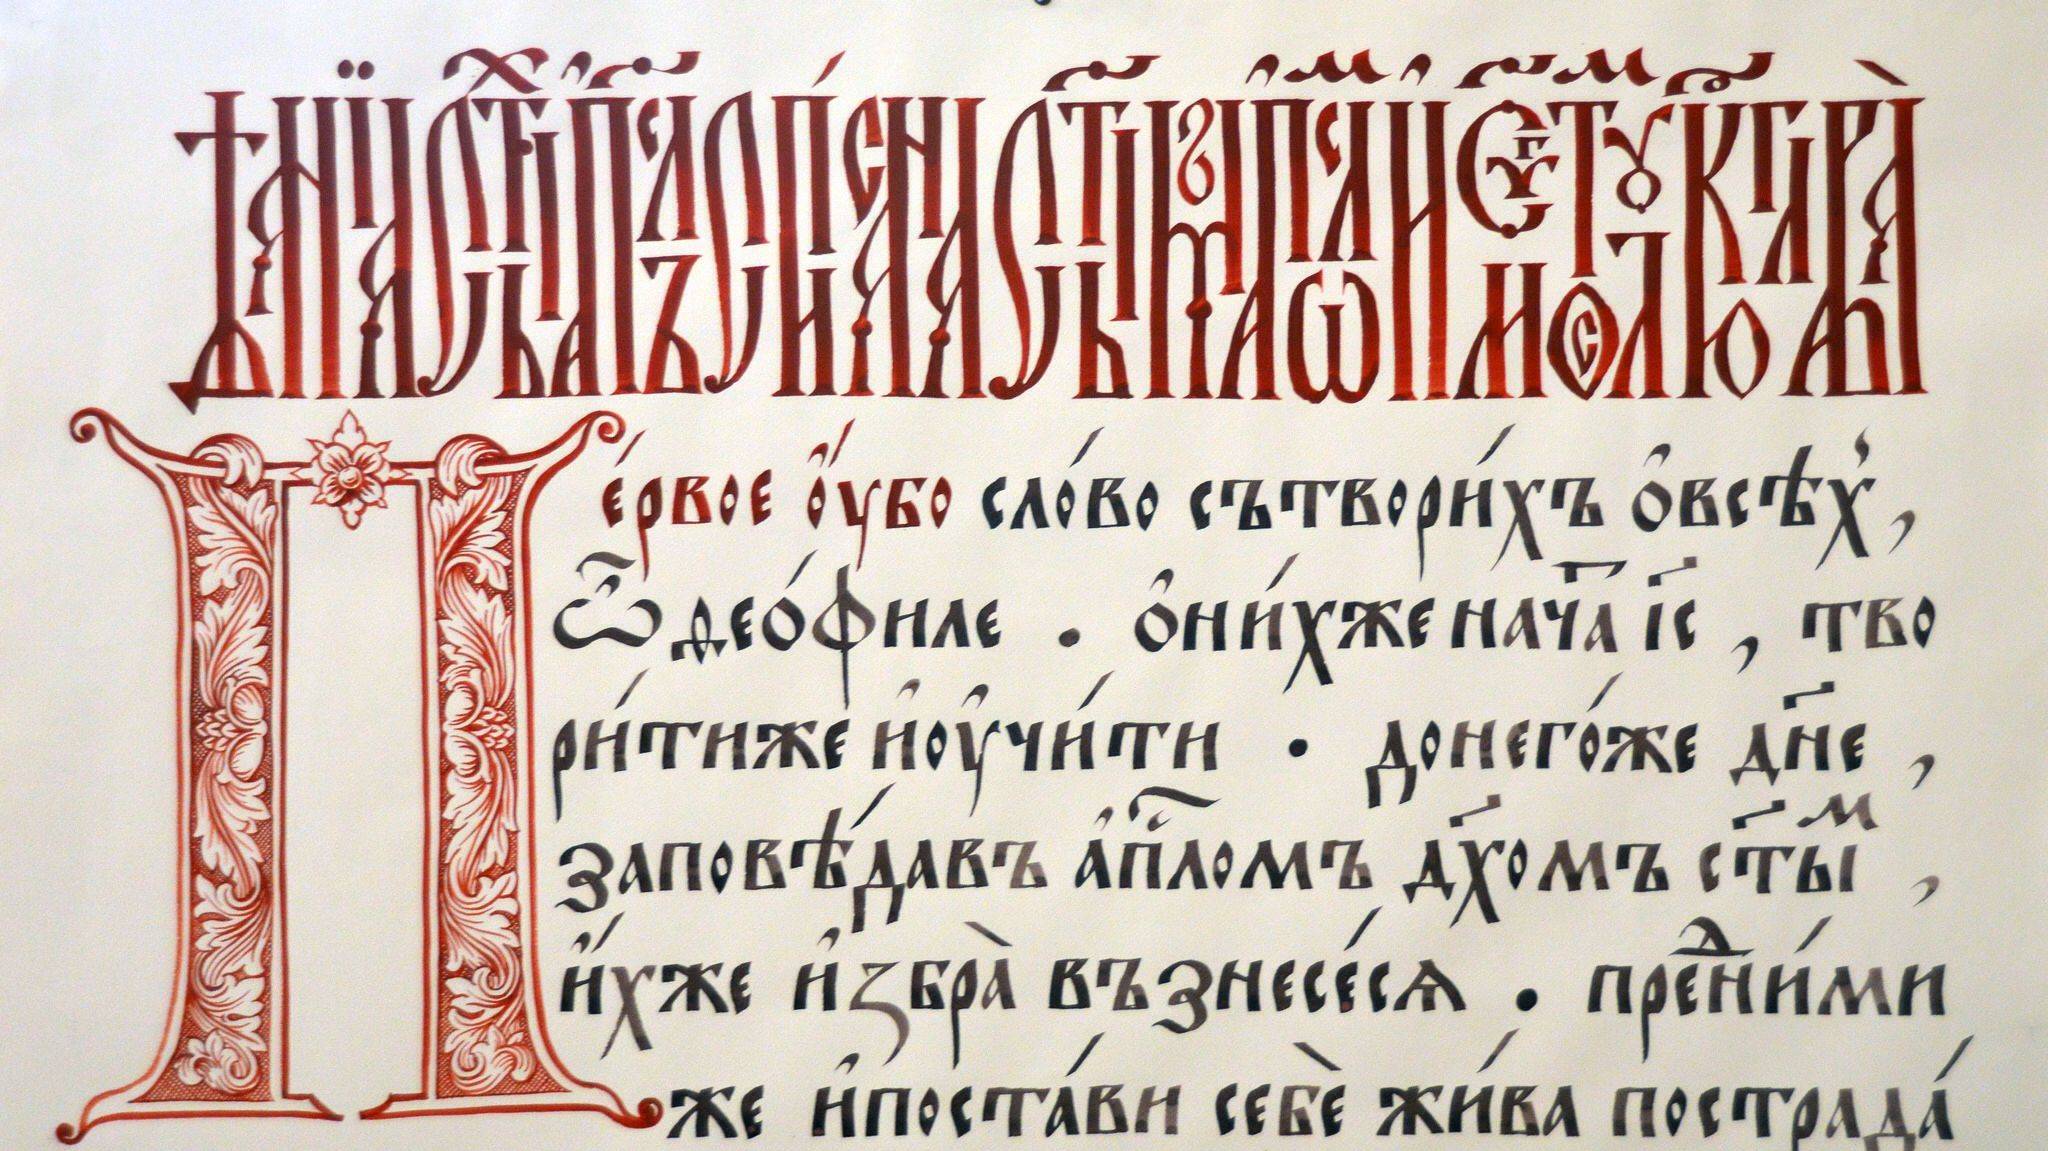 Пе́рвое ᲂу҆́бо сло́во сътвори́хъ ѻ҆всѣ́х̾,
ѽ деѻ́филе . ѻ҆ни́хже нача҃ іс҃, тво
ри́тиже и҆ᲂу҆чи́ти · донего́же дн҃е,
заповѣ́давъ а҆п҃ломъ дх҃омъ ст҃ыⷨ,
и҆́хже и҆збра̀ възнесе́сѧ · преⷣни́ми
же и҆поста́ви себѐ жи́ва пострада́